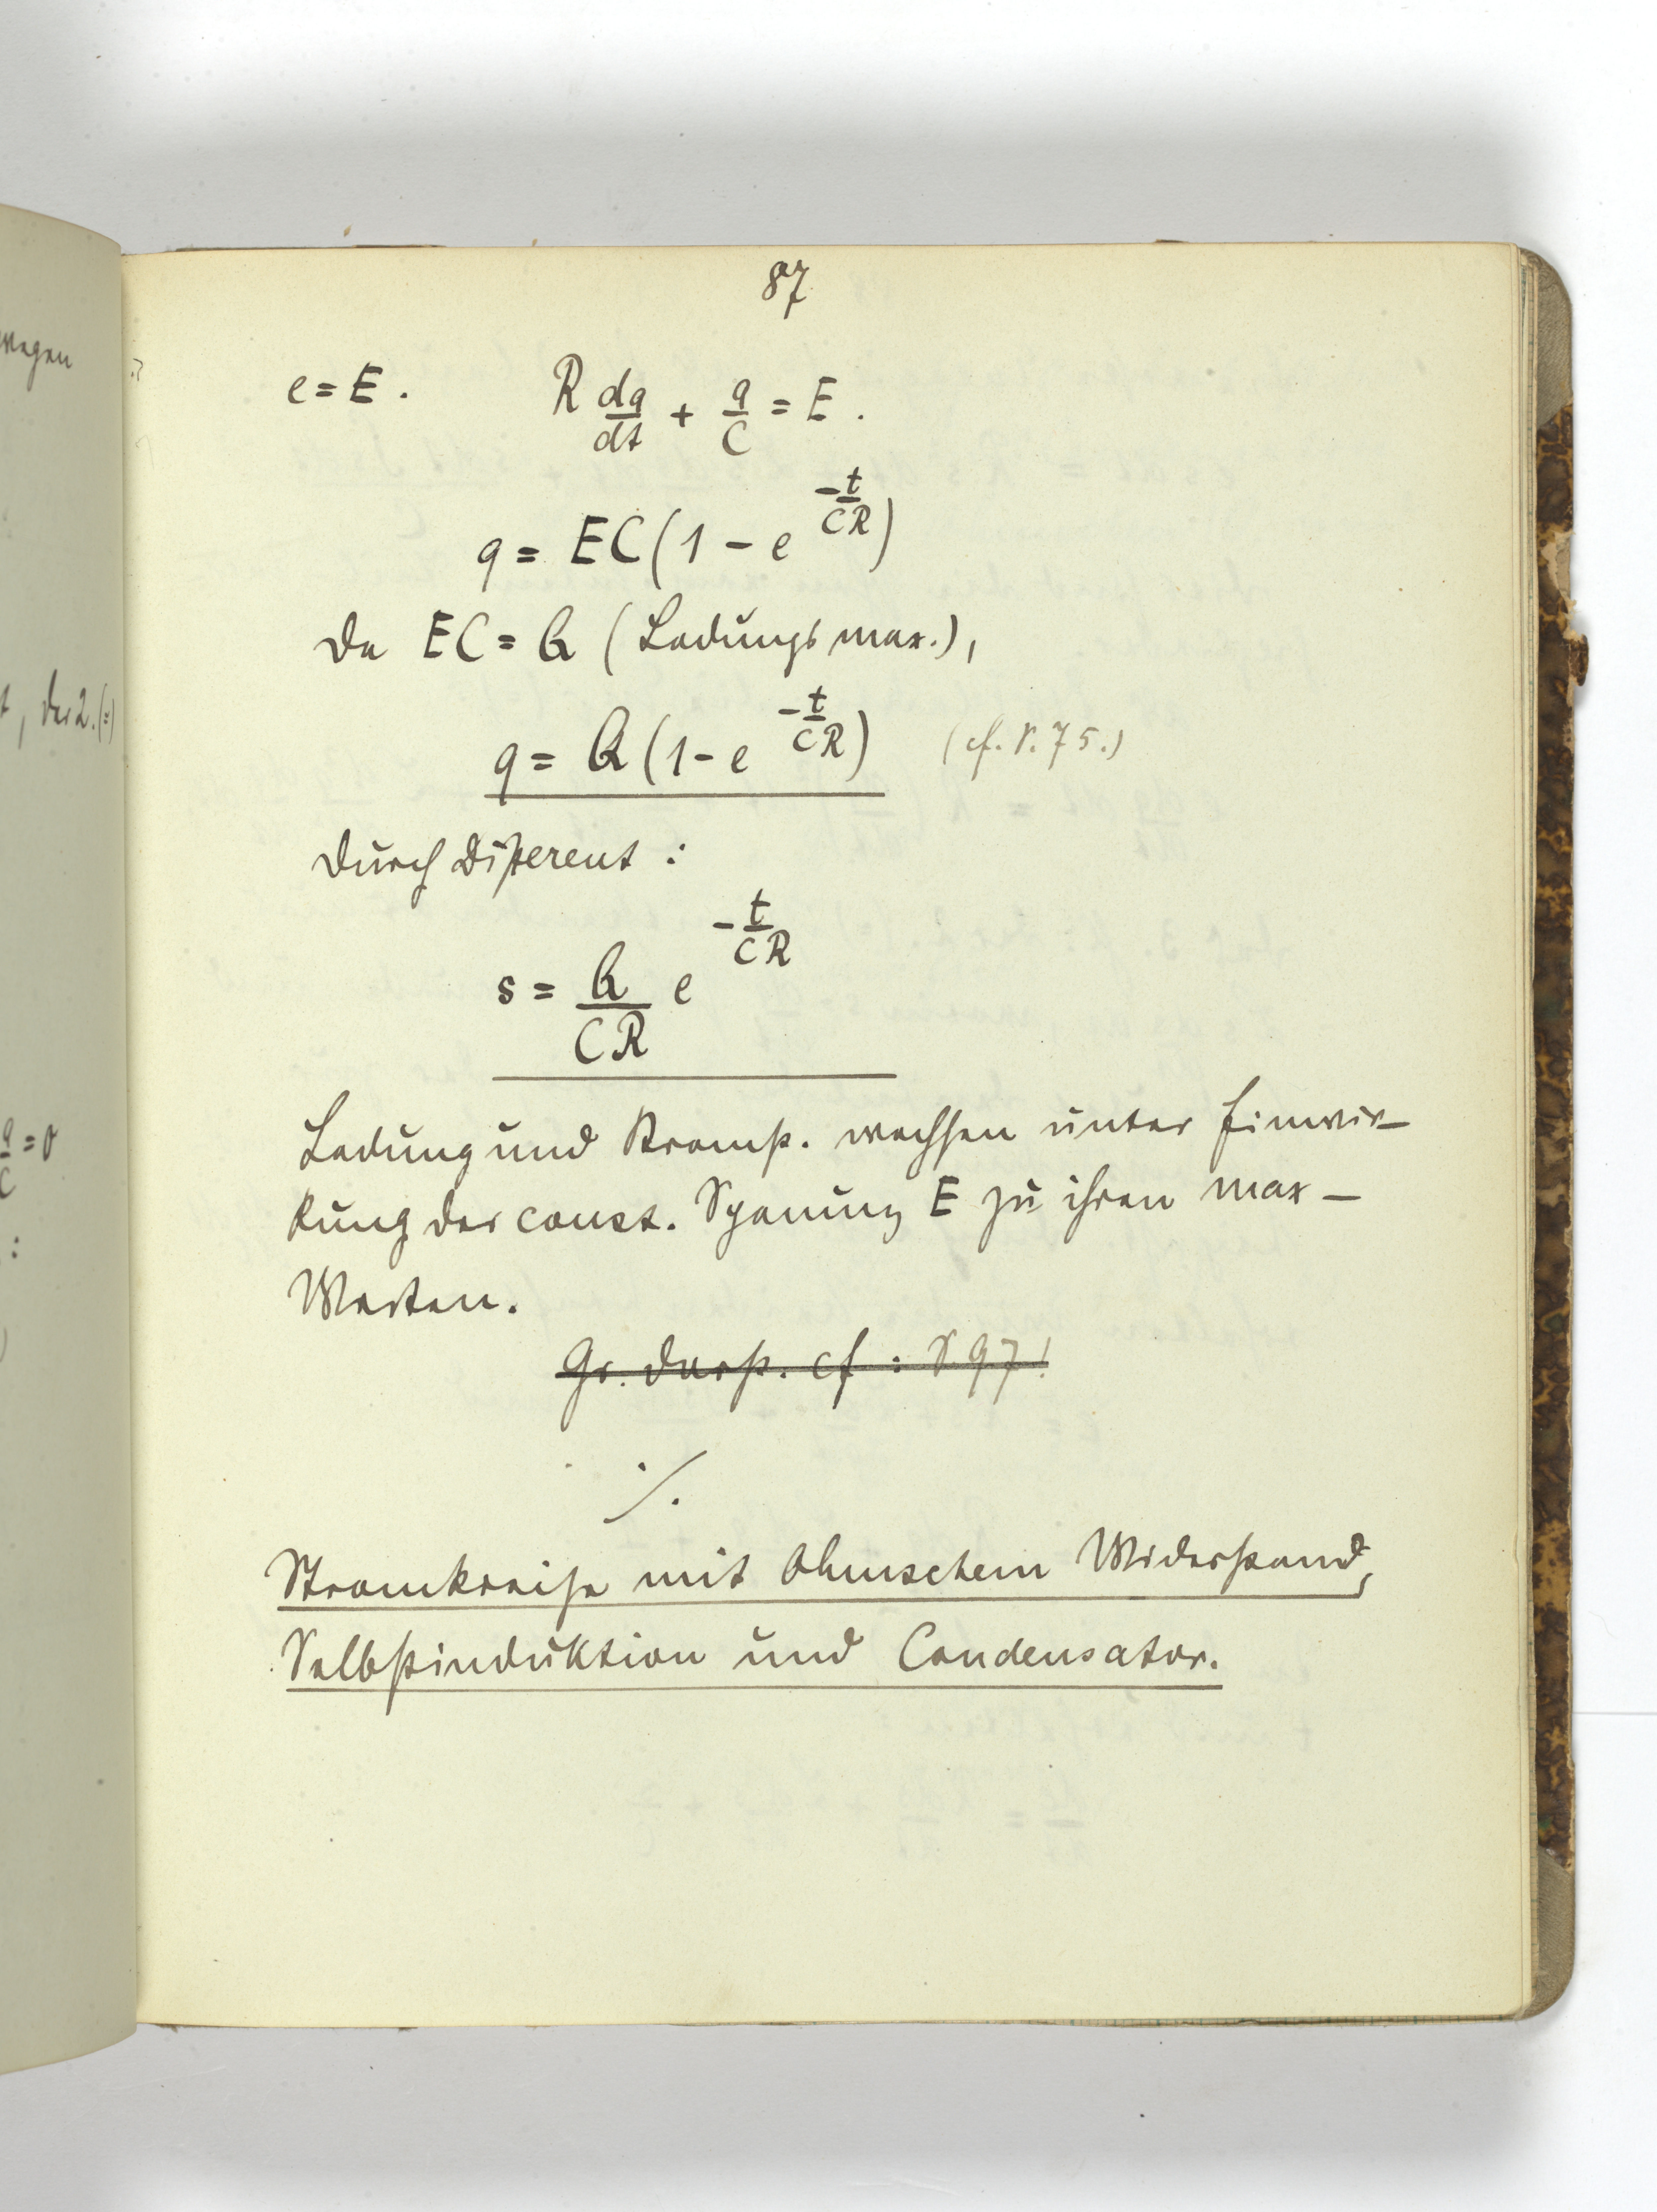 wegen
t, der 2. (:)
q/C = 0
:
87
e = E. R dq/dt + q/C = E.
q = EC (1 - e^{-t/CR})
Da EC = Q (Ladungsmax.),
q = Q (1 - e^{-t/CR}) (cf. S. 75.)
Durch Different:
s = Q/CR e^{-t/CR}
Ladung und Stromst. wachsen unter Einwir-
kung der const. Spanung E zu ihren max-
Werten.
Gr. darst. cf: S 97!
./.
Stromkreise mit Ohmschem Widerstand,
Selbstinduktion und Condensator.